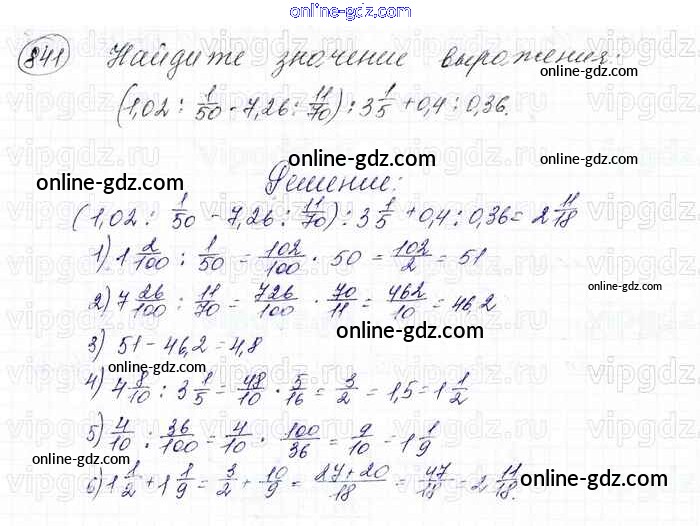 online-gdz.com
841 Найдите значение выражения:
(1,02 : 1/50 - 7,26 : 11/70) : 3 1/5 + 0,4 : 0,36.
online-gdz.com
online-gdz.com
Решение:
(1,02 : 1/50 - 7,26 : 11/70) : 3 1/5 + 0,4 : 0,36 = 2 11/18
1) 1 2/100 : 1/50 = 102/100 · 50 = 102/2 = 51
online-gdz.com
2) 7 26/100 : 11/70 = 726/100 · 70/11 = 462/10 = 46,2
online-gdz.com
3) 51 - 46,2 = 4,8
online-gdz.com
4) 4 8/10 : 3 1/5 = 48/10 · 5/16 = 3/2 = 1,5 = 1 1/2
online-gdz.com
5) 4/10 : 36/100 = 4/10 · 100/36 = 9/10 = 1 1/9
online-gdz.com
6) 1 1/2 + 1 1/9 = 3/2 + 10/9 = 27+20/18 = 47/18 = 2 11/18.
online-gdz.com